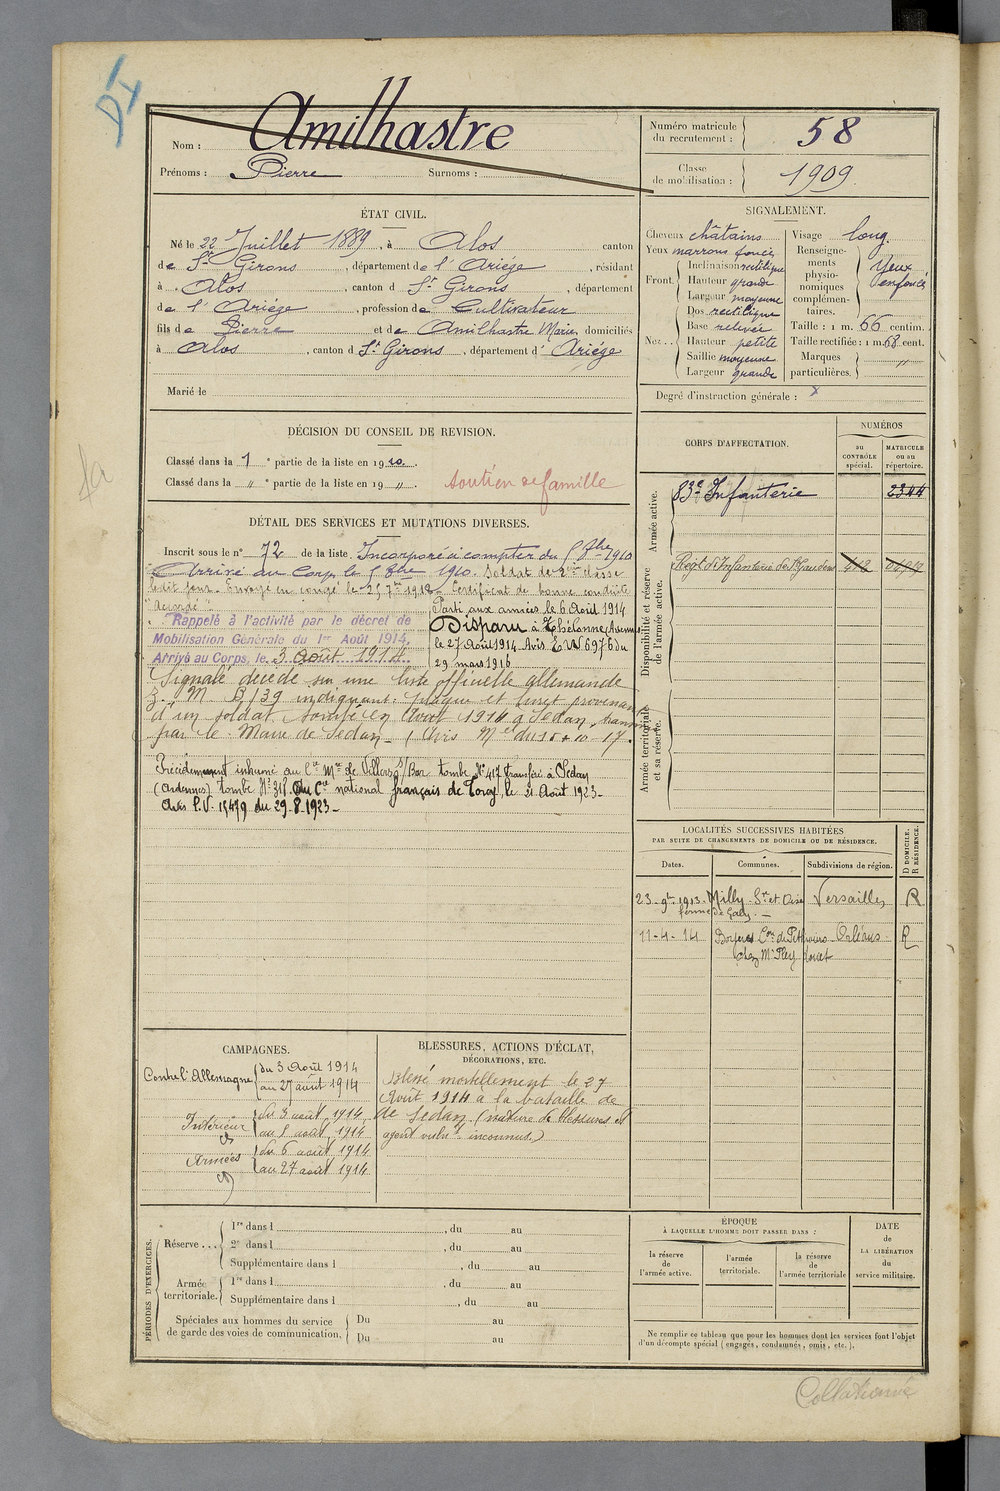 DI
Nom : Amilhastre
Prénoms : Pierre Surnoms :
Numéro matricule du recrutement : 58
Classe de mobilisation : 1909
ÉTAT CIVIL.
Né le 22 Juillet 1889, à Alos canton
de St Girons, département de l'Ariège, résidant
à Alos canton d St Girons, département
de l'Ariège, profession de Cultivateur
fils de Pierre et de Amilhastre Marie, domiciliés
à Alos, canton d St Girons, département d'Ariège
Marié le
SIGNALEMENT.
Cheveux châtains
Yeux marrons foncés
Front Inclinaison rectiligne
Hauteur grande
Largeur moyenne
Nez Dos rectiligne
Base relevée
Hauteur petite
Saillie moyenne
Largeur grande
Visage long.
Renseignements physionomiques complémentaires. Yeux enfoncés
Taille : 1 m. 66 centim.
Taille rectifiée : 1 m. 68 cent.
Marques particulières. "
Degré d'instruction générale : x
DÉCISION DU CONSEIL DE REVISION.
Classé dans la 1e partie de la liste en 1910.
Classé dans la " e partie de la liste en 19 ".
soutien de famille
DÉTAIL DES SERVICES ET MUTATIONS DIVERSES.
Inscrit sous le n° 72 de la liste. Incorporé à compter du
Arrivé au Corps le 1910. Soldat de 2me classe
ledit jour. Envoyé en congé le 25 7bre 1912. Certificat de bonne conduite
"accordé".
Rappelé à l'activité par le décret de
Mobilisation Générale du 1er Août 1914.
Arrivé au Corps, le 3 Août 1914.
Parti aux armées le 6 Août 1914
Disparu à Thélonne, Ardennes
le 27 Août 1914 Avis 6976 du
29 mars 1916
Signalé décédé sur une liste officielle allemande
M B/39 indiquant : plaque et livret provenant
d'un soldat tombé en Août 1914 à Sedan,
par le Maire de Sedan - (Avis Mel du 15-10-17.
Précédemment inhumé au Cre Mre de Villers s/Bar tombe N° 417 transféré à Sedan
(Ardennes) tombe N° 318 du Cre national français de Torcy, le 21 Août 1923-
Avis P.V. 15479 du 29-8-1923-
CORPS D'AFFECTATION.
NUMÉROS
au CONTRÔLE spécial.
MATRICULE ou au répertoire.
Armée active.
83e Infanterie 2344
Disponibilité et réserve de l'armée active.
Régt d'Infanterie de St Gaudens
Armée territoriale et sa réserve.
LOCALITÉS SUCCESSIVES HABITÉES
PAR SUITE DE CHANGEMENTS DE DOMICILE OU DE RÉSIDENCE.
Dates. Communes. Subdivisions de région. D DOMICILE. R RÉSIDENCE.
23-9bre-1913 Milly Sne et Oise Versailles R
ferme de Galy
11-4-14 Con de Pithiviers Orléans R
chez Mr Loiret
CAMPAGNES.
Contre l'Allemagne du 3 Août 1914
au 27 août 1914
Intérieur du 3 août 1914
au 5 août 1914
Armées du 6 août 1914
au 27 août 1914
BLESSURES, ACTIONS D'ÉCLAT,
DÉCORATIONS, ETC.
Blessé mortellement le 27
Août 1914 à la bataille de
de Sedan. (nature de blessures et
agent vulnt inconnus.)
PÉRIODES D'EXERCICES.
Réserve 1re dans l , du au
2e dans l , du au
Supplémentaire dans l , du au
Armée territoriale. 1re dans l , du au
Supplémentaire dans l , du au
Spéciales aux hommes du service de garde des voies de communication. Du au
Du au
ÉPOQUE
À LAQUELLE L'HOMME DOIT PASSER DANS :
la réserve de l'armée active.
l'armée territoriale.
la réserve de l'armée territoriale
DATE de LA LIBÉRATION du service militaire.
Ne remplir ce tableau que pour les hommes dont les services font l'objet
d'un décompte spécial (engagés, condamnés, omis, etc.).
Collationné